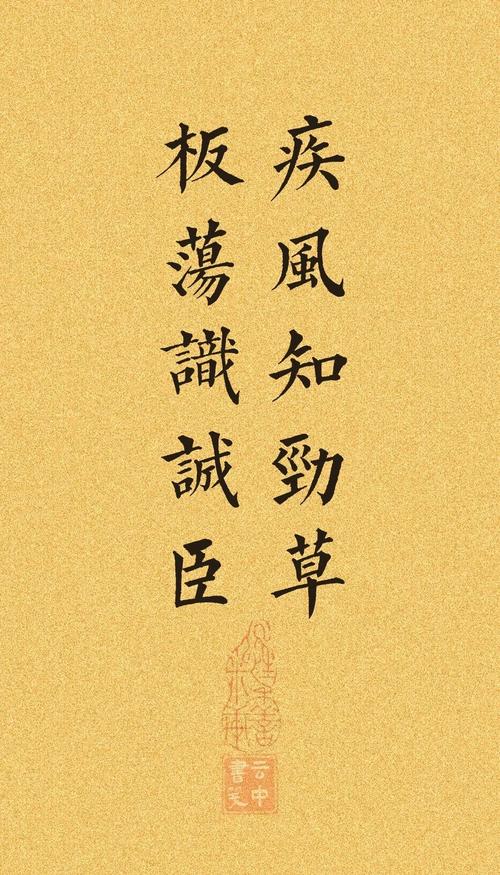 疾風知勁草
板蕩識誠臣
云中
書笺